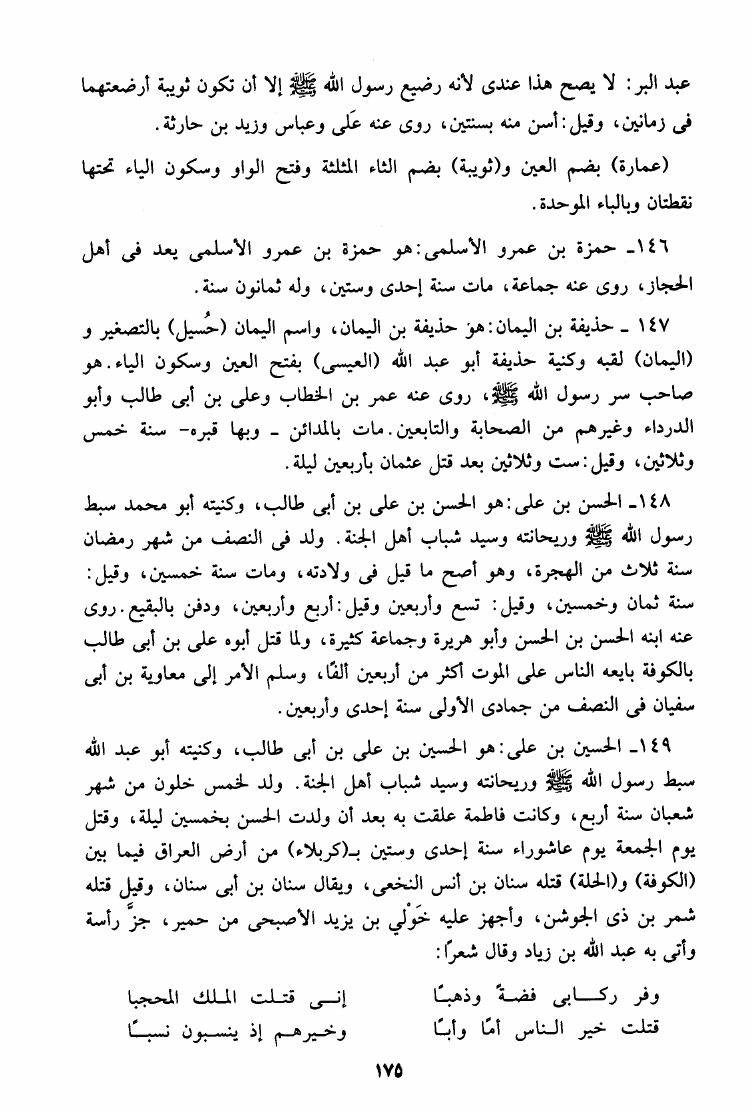 عبد البر: لا يصح هذا عندى لأنه رضيع رسول الله ﷺ إلا أن تكون ثويبة أرضعتهما
فى زمانين، وقيل: أسن منه بسنتين، روى عنه عَلى وعباس وزيد بن حارثة.
(عمارة) بضم العين و(ثويبة) بضم الثاء المثلثة وفتح الواو وسكون الياء تحتها
نقطتان وبالباء الموحدة.
١٤٦ـ حمزة بن عمرو الأسلمى: هو حمزة بن عمرو الأسلمى يعد فى أهل
الحجاز، روى عنه جماعة، مات سنة إحدى وستين، وله ثمانون سنة.
١٤٧ ـ حذيفة بن اليمان: هو حذيفة بن اليمان، واسم اليمان (حُسيل) بالتصغير و
(اليمان) لقبه وكنية حذيفة أبو عبد الله (العيسى) بفتح العين وسكون الياء. هو
صاحب سر رسول الله ﷺ، روى عنه عمر بن الخطاب وعلى بن أبى طالب وأبو
الدرداء وغيرهم من الصحابة والتابعين. مات بالمدائن ـ وبها قبره- سنة خمس
وثلاثين، وقيل: ست وثلاثين بعد قتل عثمان بأربعين ليلة.
١٤٨ـ الحسن بن على: هو الحسن بن على بن أبى طالب، وكنيته أبو محمد سبط
رسول الله ﷺ وريحانته وسيد شباب أهل الجنة. ولد فى النصف من شهر رمضان
سنة ثلاث من الهجرة، وهو أصح ما قيل فى ولادته، ومات سنة خمسين، وقيل:
سنة ثمان وخمسين، وقيل: تسع وأربعين وقيل: أربع وأربعين، ودفن بالبقيع. روى
عنه ابنه الحسن بن الحسن وأبو هريرة وجماعة كثيرة، ولما قتل أبوه على بن أبى طالب
بالكوفة بايعه الناس على الموت أكثر من أربعين ألفًا، وسلم الأمر إلى معاوية بن أبى
سفيان فى النصف من جمادى الأولى سنة إحدى وأربعين.
١٤٩ـ الحسين بن على: هو الحسين بن على بن أبى طالب، وكنيته أبو عبد الله
سبط رسول الله ﷺ وريحانته وسيد شباب أهل الجنة. ولد لخمس خلون من شهر
شعبان سنة أربع، وكانت فاطمة علقت به بعد أن ولدت الحسن بخمسين ليلة، وقتل
يوم الجمعة يوم عاشوراء سنة إحدى وستين بـ(كربلاء) من أرض العراق فيما بين
(الكوفة) و(الحلة) قتله سنان بن أنس النخعى، ويقال سنان بن أبى سنان، وقيل قتله
شمر بن ذى الجوشن، وأجهز عليه خَوْلي بن يزيد الأصبحى من حمير، جزَّ رأسة
وأتى به عبد الله بن زياد وقال شعرًا:
وفر ركـــابى فضـةً وذهبـًا إنــى قتـلـت المـلـك المحجبا
قتلت خير الـناس أمًا وأبـًا وخـيرهـم إذ ينسـبون نسبـًا
١٧٥